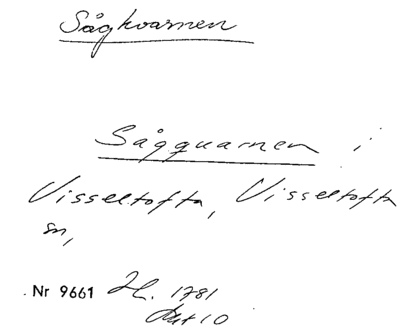 Sågkvarnen
Sågquarnen i
Visseltofta, Visseltofta
sn,
Nr 9661 H. 1781
Akt 10